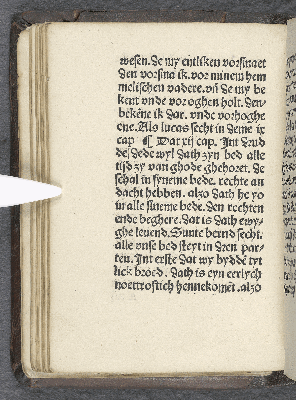 wesen. de my entliken vorsmaet
den vorsma ik. vor minem hem
melischen vadere. vñ de my be
kent vnde vor oghen holt. den
bekēne ik dar. vnde vorhoghe
ene. Als lucas secht in deme ix
cap ¶ Dat vij cap. Int drud
de/ dede wyl dath zyn bed alle
tijd zy van ghode ghehoret. de
schal in syneme bede. rechte an
dacht hebben. alzo dath he yo
in alle sineme bede. den rechten
ende beghere. dat is dath ewy-
ghe leuend. Sunte bernd secht.
alle vnse bed steyt in dren par-
ten. Int erste dat wy bydde tyt
lick broed. dath is eyn eerlych
noettroftich hennekomēt. alzo